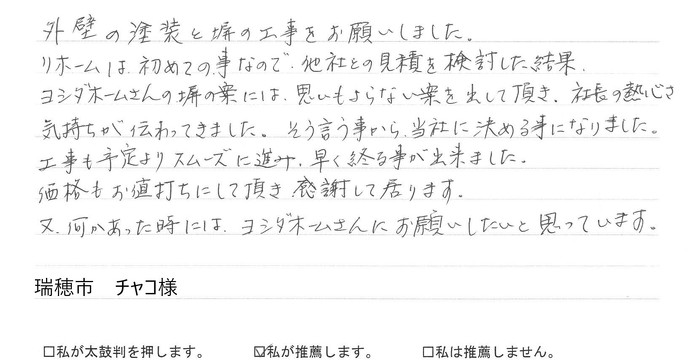 外壁の塗装と塀の工事をお願いしました。
リホームは、初めての事なので、他社との見積を検討した結果、
ヨシダホームさんの塀の案には、思いもよらない案を出して頂き、社長の熱心さ
気持ちが伝わってきました。そう言う事から、当社に決める事になりました。
工事も予定よりスムーズに進み、早く終る事が出来ました。
価格もお値打ちにして頂き、感謝して居ります。
又、何かあった時には、ヨシダホームさんにお願いしたいと思っています。
瑞穂市 チャコ様
☐私が太鼓判を押します。 ☑私が推薦します。 ☐私は推薦しません。